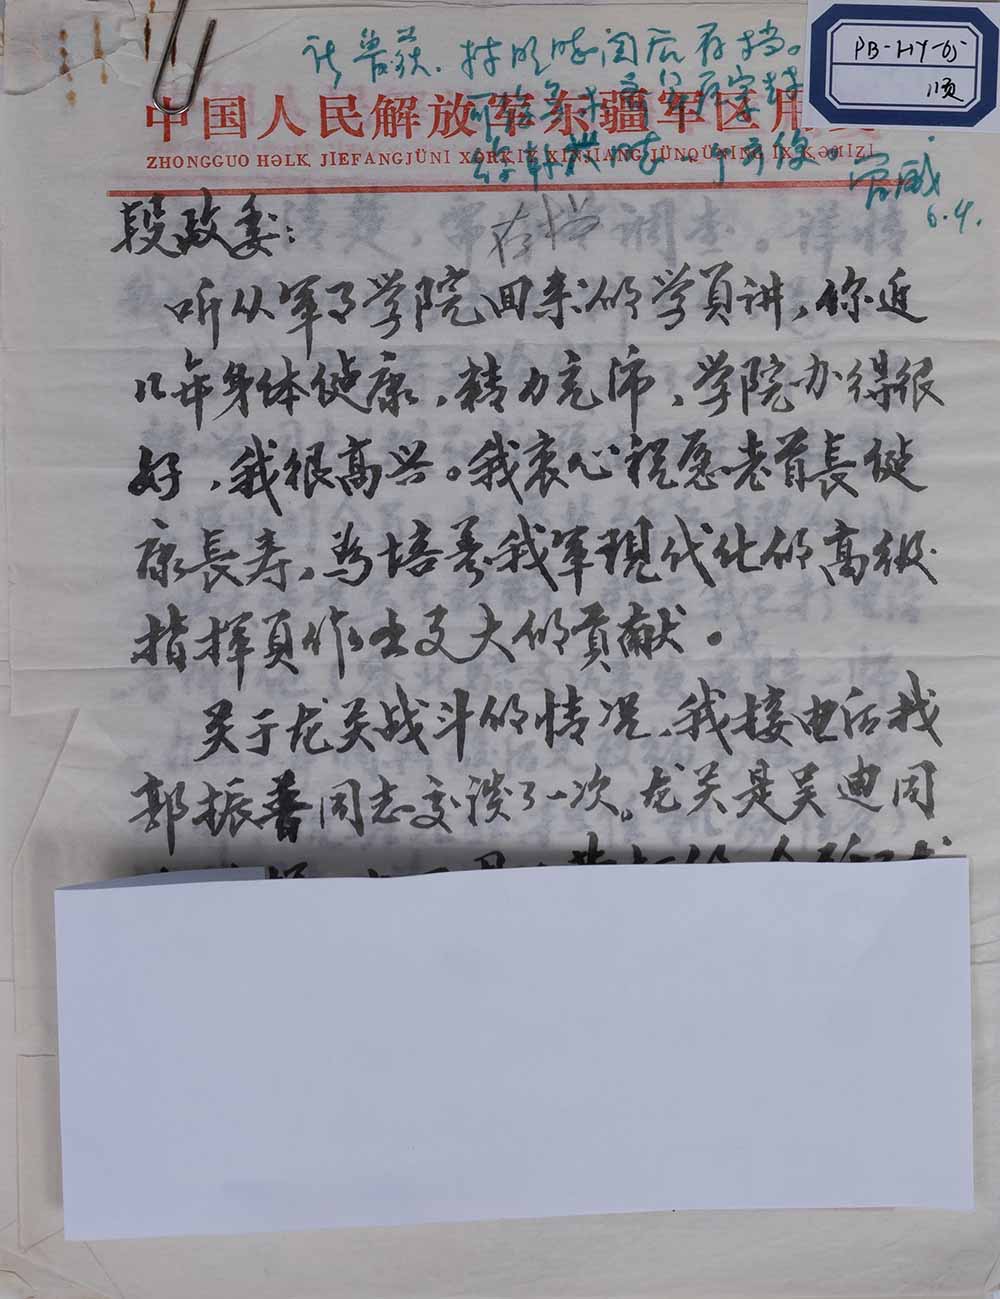 PB-HY-65
1页
存档。
中国人民解放军东疆军区用
ZHONGGUO HƏLK JIEFANGJÜNI XƏRKIY XINJIANG JÜNQÜNING IX KƏĢIZI
6.4.
段政委：
存档
听从军事学院回来的学员讲，你近
几年身体健康，精力充沛，学院办得很
好，我很高兴。我衷心祝愿老首長健
康長寿，为培养我军现代化的高级
指挥员作出更大的贡献。
关于龙关战斗的情况，我接电话找
郭振普同志交谈了一次。龙关是吴迪同